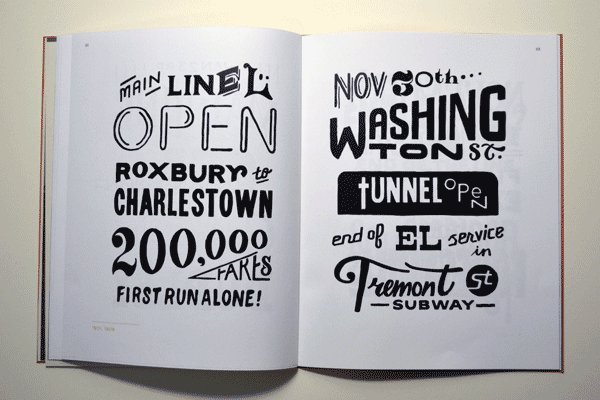 MAIN LINE EL
OPEN
ROXBURY to
CHARLESTOWN
200,000
FARES
FIRST RUN ALONE!
NOV 30th...
WASHING
TON ST.
TUNNEL OPEN
end of EL service
in
Tremont St
SUBWAY